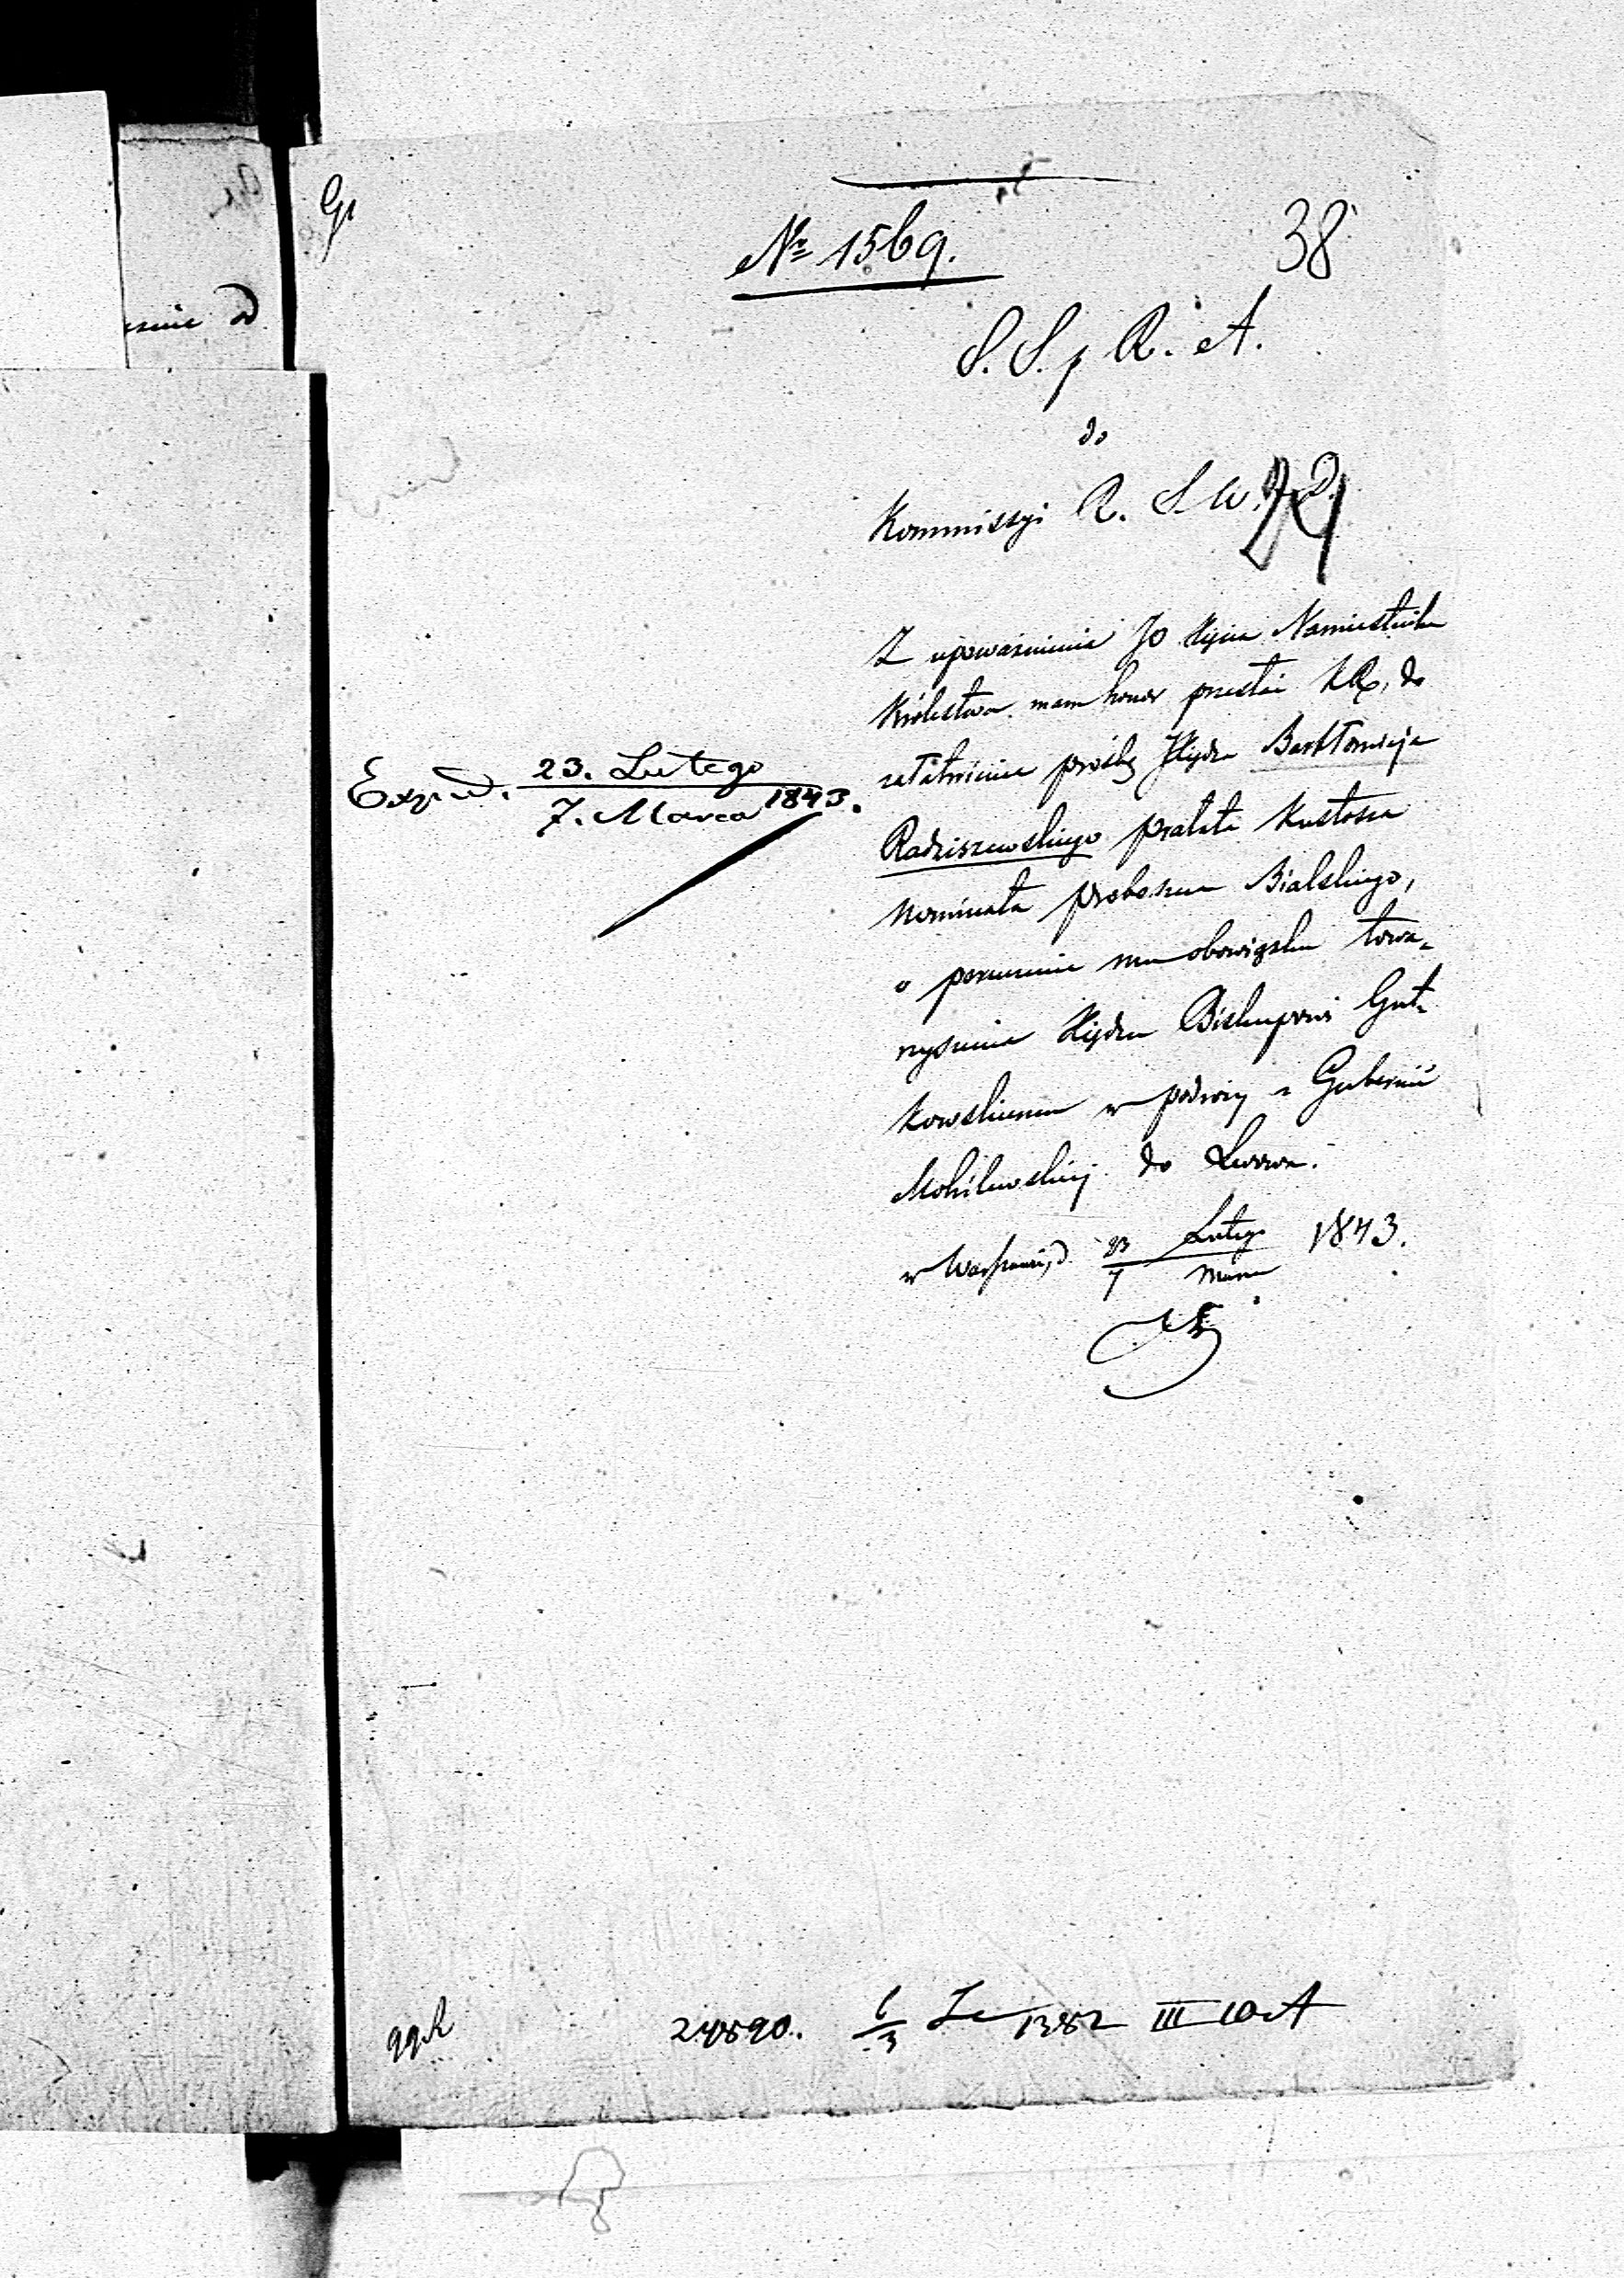 Gr
esnie od
№ 1569.
38
S. S. p R. A.
do
Kommissyi R. S. W.
Z upoważnienia JO Xięcia Namiestnika
Królestwa mam honor przesłać KR, do
załatwienia prośbę Xiędza Bartłomieja
Radziszewskiego prałata Kustosza
nominata proboszcza Bialskiego,
o poruczenie mu obowiązku towa-
rzyszenia Xiędzu Biskupowi Gut-
kowskiemu w podróży z Gubernii
Mohilewskiej do Lwowa.
w Warszawie, d. 23 Lutego 1843.
7 Marca
Exped. 23. Lutego
7. Marca 1843.
24890. 1382 III 10 A